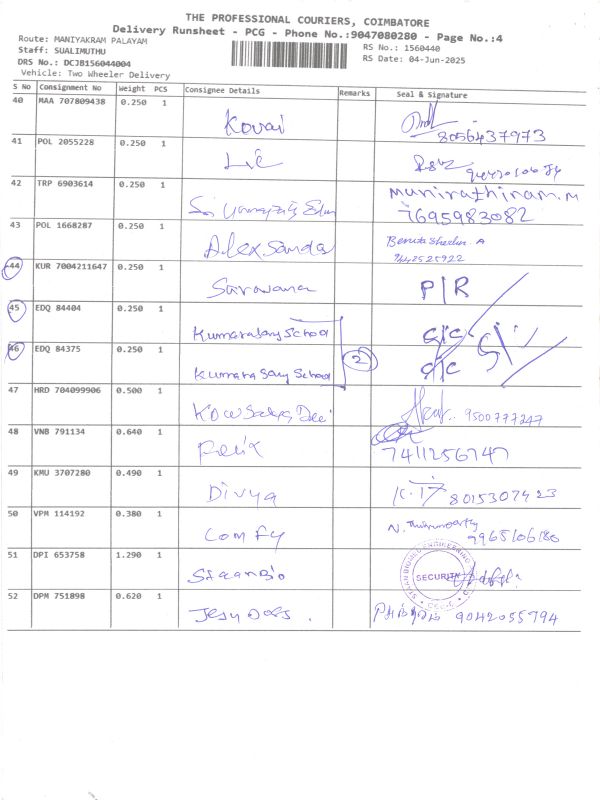 THE PROFESSIONAL COURIERS, COIMBATORE
Delivery Runsheet - PCG - Phone No.:9047080280 - Page No.:4
Route: MANIYAKRAM PALAYAM
RS No.: 1560440
Staff: SUALIMUTHU
RS Date: 04-Jun-2025
DRS No.: DCJB156044004
Vehicle: Two Wheeler Delivery
S No Consignment No Weight PCS Consignee Details Remarks Seal & Signature
40 MAA 707809438 0.250 1 Kovai 8056437973
41 POL 2055228 0.250 1 Lic
42 TRP 6903614 0.250 1 Munirathinam.M
7695983082
43 POL 1668287 0.250 1 Alex Sanda
44 KUR 7004211647 0.250 1 Saravana P/R
45 EDQ 84404 0.250 1 Kumarasamy School c/c
46 EDQ 84375 0.250 1 Kumarasamy School 2 c/c
47 HRD 704099906 0.500 1 9500777247
48 VNB 791134 0.640 1 Felix
7411256747
49 KMU 3707280 0.490 1 Divya 8015307423
50 VPM 114192 0.380 1 Comfy
9965106180
51 DPI 653758 1.290 1 SECURITY
52 DPM 751898 0.620 1 Jesu Doss 9042055794